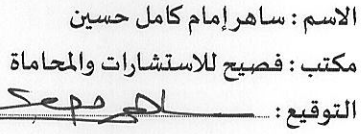 الاسم : ساهر إمام كامل حسين
مكتب : فصيح للاستشارات والمحاماة
التوقيع :